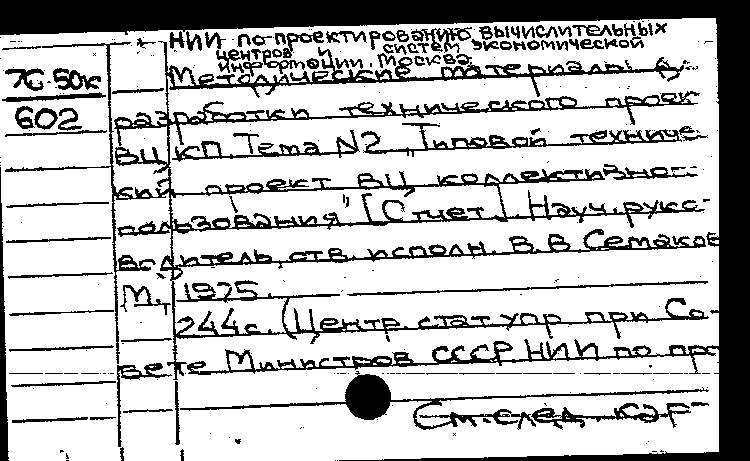 НИИ по проектированию вычислительных
центров и систем экономической
информации. Москва.
7С-50к
Методические материалы
602
разработки технического проек
ВЦ КП. Тема N2 „Типовой техниче-
кий проект ВЦ коллективног
пользования" [Отчет]. Науч. руко-
водитель, отв. исполн. В.В Семаков
М., 1975.
244с. (Центр. стат упр при Со-
вете Министров СССР НИИ по про
См. след. кар-